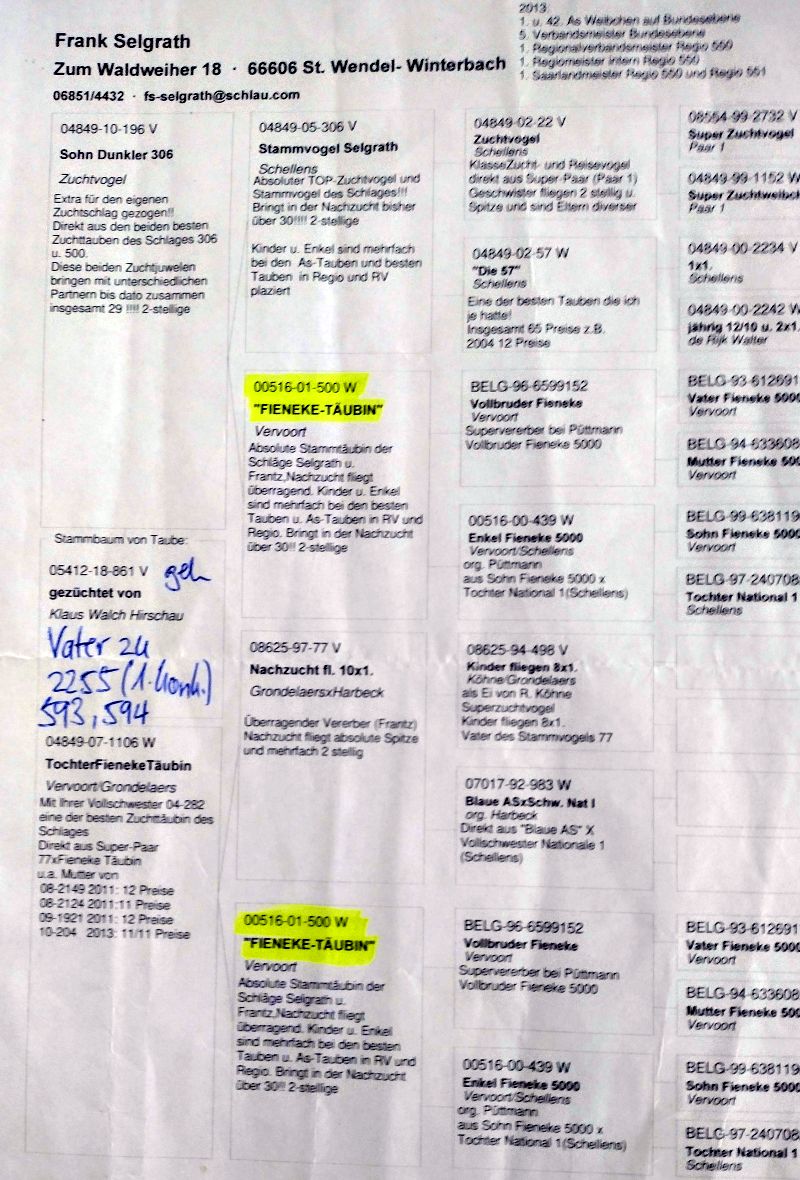 2013:
1. u. 42. As Weibchen auf Bundesebene
5. Verbandsmeister Bundesebene
1. Regionalverbandsmeister Regio 550
1. Regiomeister intern Regio 550
1. Saarlandmeister Regio 550 und Regio 551
Frank Selgrath
Zum Waldweiher 18 · 66606 St. Wendel- Winterbach
06851/4432 · fs-selgrath@schlau.com
04849-10-196 V
Sohn Dunkler 306
Zuchtvogel
Extra für den eigenen
Zuchtschlag gezogen!!
Direkt aus den beiden besten
Zuchttauben des Schlages 306
u. 500.
Diese beiden Zuchtjuwelen
bringen mit unterschiedlichen
Partnern bis dato zusammen
insgesamt 29 !!!! 2-stellige
Stammbaum von Taube:
05412-18-861 V geh
gezüchtet von
Klaus Walch Hirschau
Vater zu
2255 (1. Konk.)
593, 594
04849-07-1106 W
TochterFienekeTäubin
Vervoort/Grondelaers
Mit Ihrer Vollschwester 04-282
eine der besten Zuchttäubin des
Schlages
Direkt aus Super-Paar
77xFieneke Täubin
u.a. Mutter von
08-2149 2011: 12 Preise
08-2124 2011:11 Preise
09-1921 2011: 12 Preise
10-204 2013: 11/11 Preise
04849-05-306 V
Stammvogel Selgrath
Schellens
Absoluter TOP-Zuchtvogel und
Stammvogel des Schlages!!!
Bringt in der Nachzucht bisher
über 30!!!! 2-stellige
Kinder u. Enkel sind mehrfach
bei den As-Tauben und besten
Tauben in Regio und RV
plaziert
00516-01-500 W
"FIENEKE-TÄUBIN"
Vervoort
Absolute Stammtäubin der
Schläge Selgrath u.
Frantz,Nachzucht fliegt
überragend. Kinder u. Enkel
sind mehrfach bei den besten
Tauben u. As-Tauben in RV und
Regio. Bringt in der Nachzucht
über 30!! 2-stellige
08625-97-77 V
Nachzucht fl. 10x1.
GrondelaersxHarbeck
Überragender Vererber (Frantz)
Nachzucht fliegt absolute Spitze
und mehrfach 2 stellig
00516-01-500 W
"FIENEKE-TÄUBIN"
Vervoort
Absolute Stammtäubin der
Schläge Selgrath u.
Frantz,Nachzucht fliegt
überragend. Kinder u. Enkel
sind mehrfach bei den besten
Tauben u. As-Tauben in RV und
Regio. Bringt in der Nachzucht
über 30!! 2-stellige
04849-02-22 V
Zuchtvogel
Schellens
KlasseZucht- und Reisevogel
direkt aus Super-Paar (Paar 1)
Geschwister fliegen 2 stellig u.
Spitze und sind Eltern diverser
04849-02-57 W
"Die 57"
Schellens
Eine der besten Tauben die ich
je hatte!
Insgesamt 65 Preise z.B.
2004 12 Preise
BELG-96-6599152
Vollbruder Fieneke
Vervoort
Supervererber bei Püttmann
Vollbruder Fieneke 5000
00516-00-439 W
Enkel Fieneke 5000
Vervoort/Schellens
org. Püttmann
aus Sohn Fieneke 5000 x
Tochter National 1(Schellens)
08625-94-498 V
Kinder fliegen 8x1.
Köhne/Grondelaers
als Ei von R. Köhne
Superzuchtvogel
Kinder fliegen 8x1.
Vater des Stammvogels 77
07017-92-983 W
Blaue ASxSchw. Nat I
org. Harbeck
Direkt aus "Blaue AS" X
Vollschwester Nationale 1
(Schellens)
BELG-96-6599152
Vollbruder Fieneke
Vervoort
Supervererber bei Püttmann
Vollbruder Fieneke 5000
00516-00-439 W
Enkel Fieneke 5000
Vervoort/Schellens
org. Püttmann
aus Sohn Fieneke 5000 x
Tochter National 1(Schellens)
08554-99-2732 V
Super Zuchtvogel
Paar 1
04849-99-1152 W
Super Zuchtweibch
Paar 1
04849-00-2234 V
1x1.
Schellens
04849-00-2242 W
jährig 12/10 u. 2x1.
de Rijk Walter
BELG-93-612691
Vater Fieneke 5000
Vervoort
BELG-94-633608
Mutter Fieneke 500
Vervoort
BELG-99-638119
Sohn Fieneke 5000
Vervoort
BELG-97-240708
Tochter National 1
Schellens
BELG-93-612691
Vater Fieneke 5000
Vervoort
BELG-94-633608
Mutter Fieneke 500
Vervoort
BELG-99-638119
Sohn Fieneke 5000
Vervoort
BELG-97-240708
Tochter National 1
Schellens